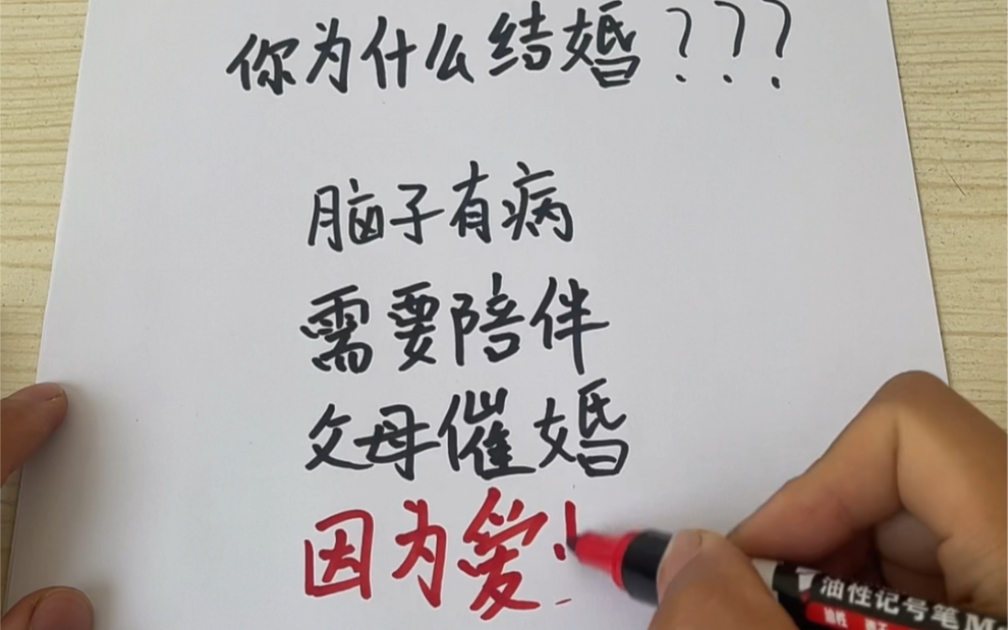 你为什么结婚???
脑子有病
需要陪伴
父母催婚
因为爱!
油性记号笔M
油性